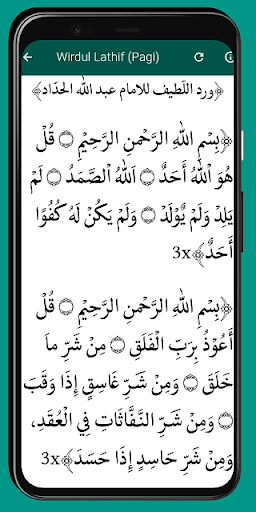 Wirdul Lathif (Pagi)
﴿ورد اللّطيف للامام عبد الله الحدّاد﴾
﴿بِسْمِ اللهِ الرَّحْمنِ الرَّحِيْمِ ۝ قُلْ
هُوَ اللهُ أَحَدٌ ۝ اَللهُ الْصَّمَدُ ۝ لَمْ
يَلِدْ وَلَمْ يُوْلَدْ ۝ وَلَمْ يَكُنْ لَهُ كُفُوًا
أَحَدٌ﴾ 3x
﴿بِسْمِ اللهِ الرَّحْمنِ الرَّحِيْمِ ۝ قُلْ
أَعُوْذُ بِرَبِّ الْفَلَقِ ۝ مِنْ شَرِّ ماَ
خَلَقَ ۝ وَمِنْ شَرِّ غَاسِقٍ إِذَا وَقَبَ
۝ وَمِنْ شَرِّ النَّفَّاثَاتِ فِي الْعُقَدِ،
وَمِنْ شَرِّ حَاسِدٍ إِذَا حَسَدَ﴾ 3x